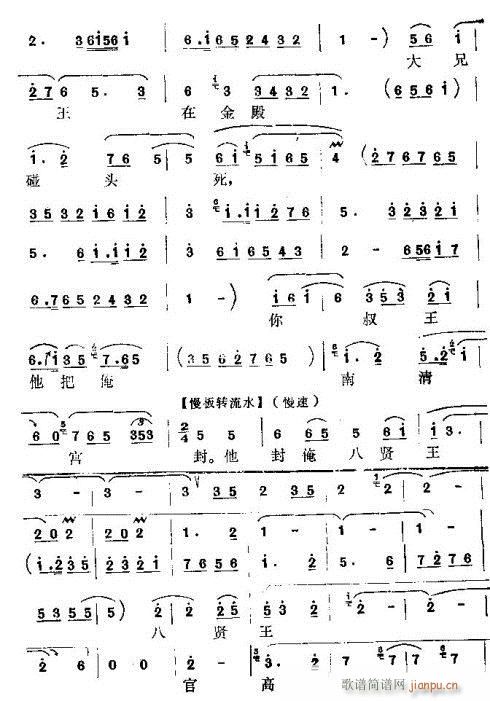 2. 3 6i56i | 6.i 65 2432 | 1 -) 56 i
大 兄
27 6 5. 3 | 6 3 3432 | 1. (656i)
王 在 金 殿
i. 2 76 5 5 | 6i 5i65 4 (276765
碰 头 死,
3532 i6i2 | 3 i.ii276 | 5. 3 2323
5. 6i.ii2 | 3 6i6543 | 2 - 656i7
6.765 2432 | 1 -) i6i | 6 353 2i
你 叔 王
6.i35 7.65 | (6765 3635) | i. 2 5.2
他 把 俺 南 清
【慢板转流水】(慢速)
60 765 353 | 2/4 5 5 | 6 65 | 5 6i | i 3.
宫 封。他 封 俺 八 贤 王
3 - | 3 - | 3 35 | 2 2 - | 2 -
202 | 202 | 1. 2 | 3 5 | 2 2
(i.235 | 232i | 7656 | i. 2 | 5. 6 | 7276
5355 | 5) 2 | 2 25 | 3 2 | 2 -
八 贤 王
2 6 | 0 0 | 2 2 | 3 2.
官 高
歌谱简谱网 jianpu.cn